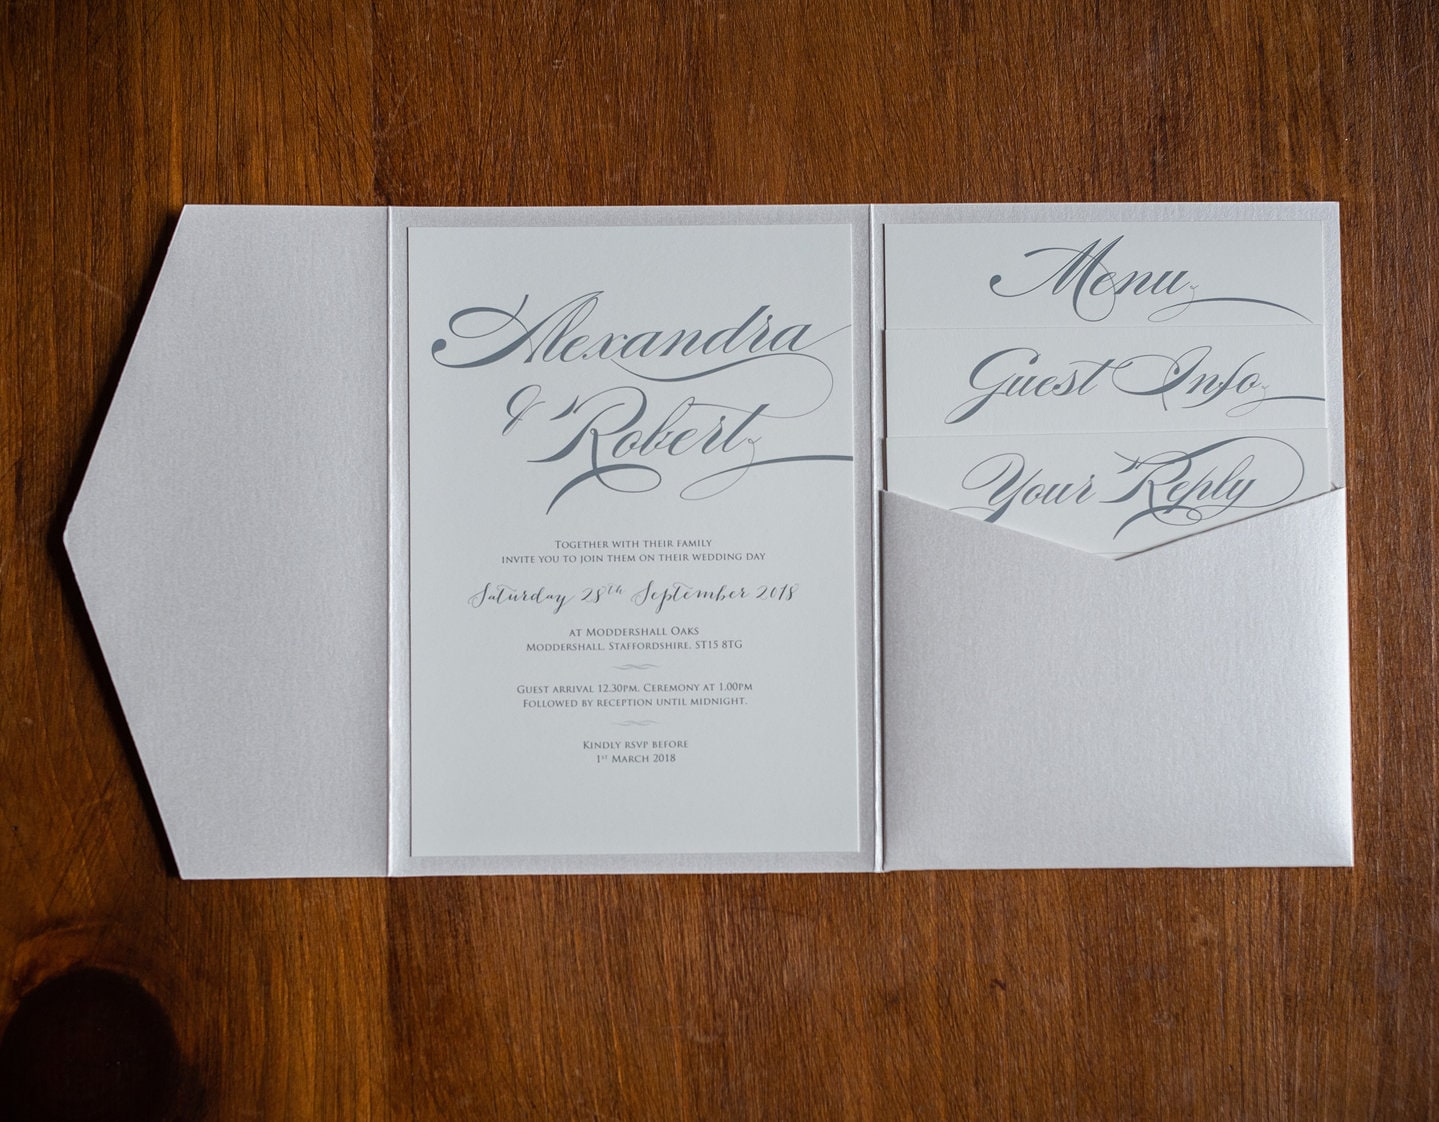 Alexandra
& Robert
Together with their family
invite you to join them on their wedding day
Saturday 28th September 2018
at Moddershall Oaks
Moddershall, Staffordshire, ST15 8TG
Guest arrival 12.30pm, Ceremony at 1.00pm
Followed by reception until midnight.
Kindly rsvp before
1st March 2018
Menu
Guest Info
Your Reply